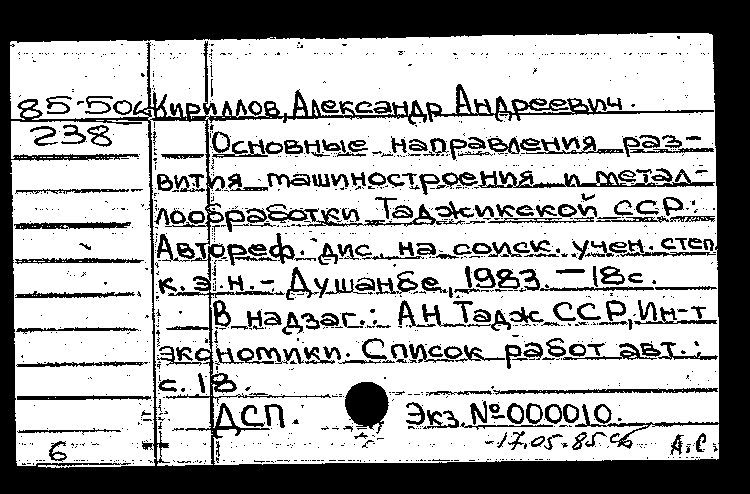 85-50с Кириллов, Александр Андреевич.
238
Основные направления раз-
вития машиностроения и метал-
лообработки Таджикской ССР:
Автореф. дис. на соиск. учен. степ.
к.э.н. - Душанбе, 1983. - 18с.
В надзаг.: АН Тадж ССР, Ин-т
экономики. Список работ авт.:
с. 18.
ДСП. Экз. №000010.
-17.05.85
6 А.С.